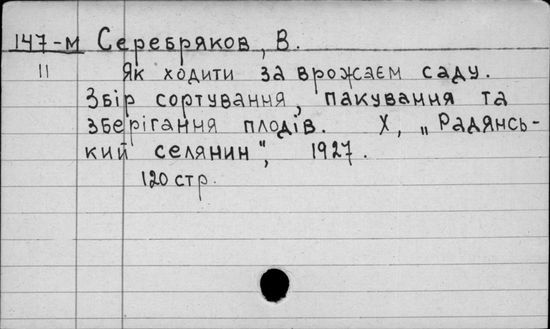 147-м Серебряков, В.
11 Як ходити за врожаєм саду.
Збір сортування, пакування та
зберігання плодів. Х, „Радянсь-
кий селянин", 1927.
120 стр.